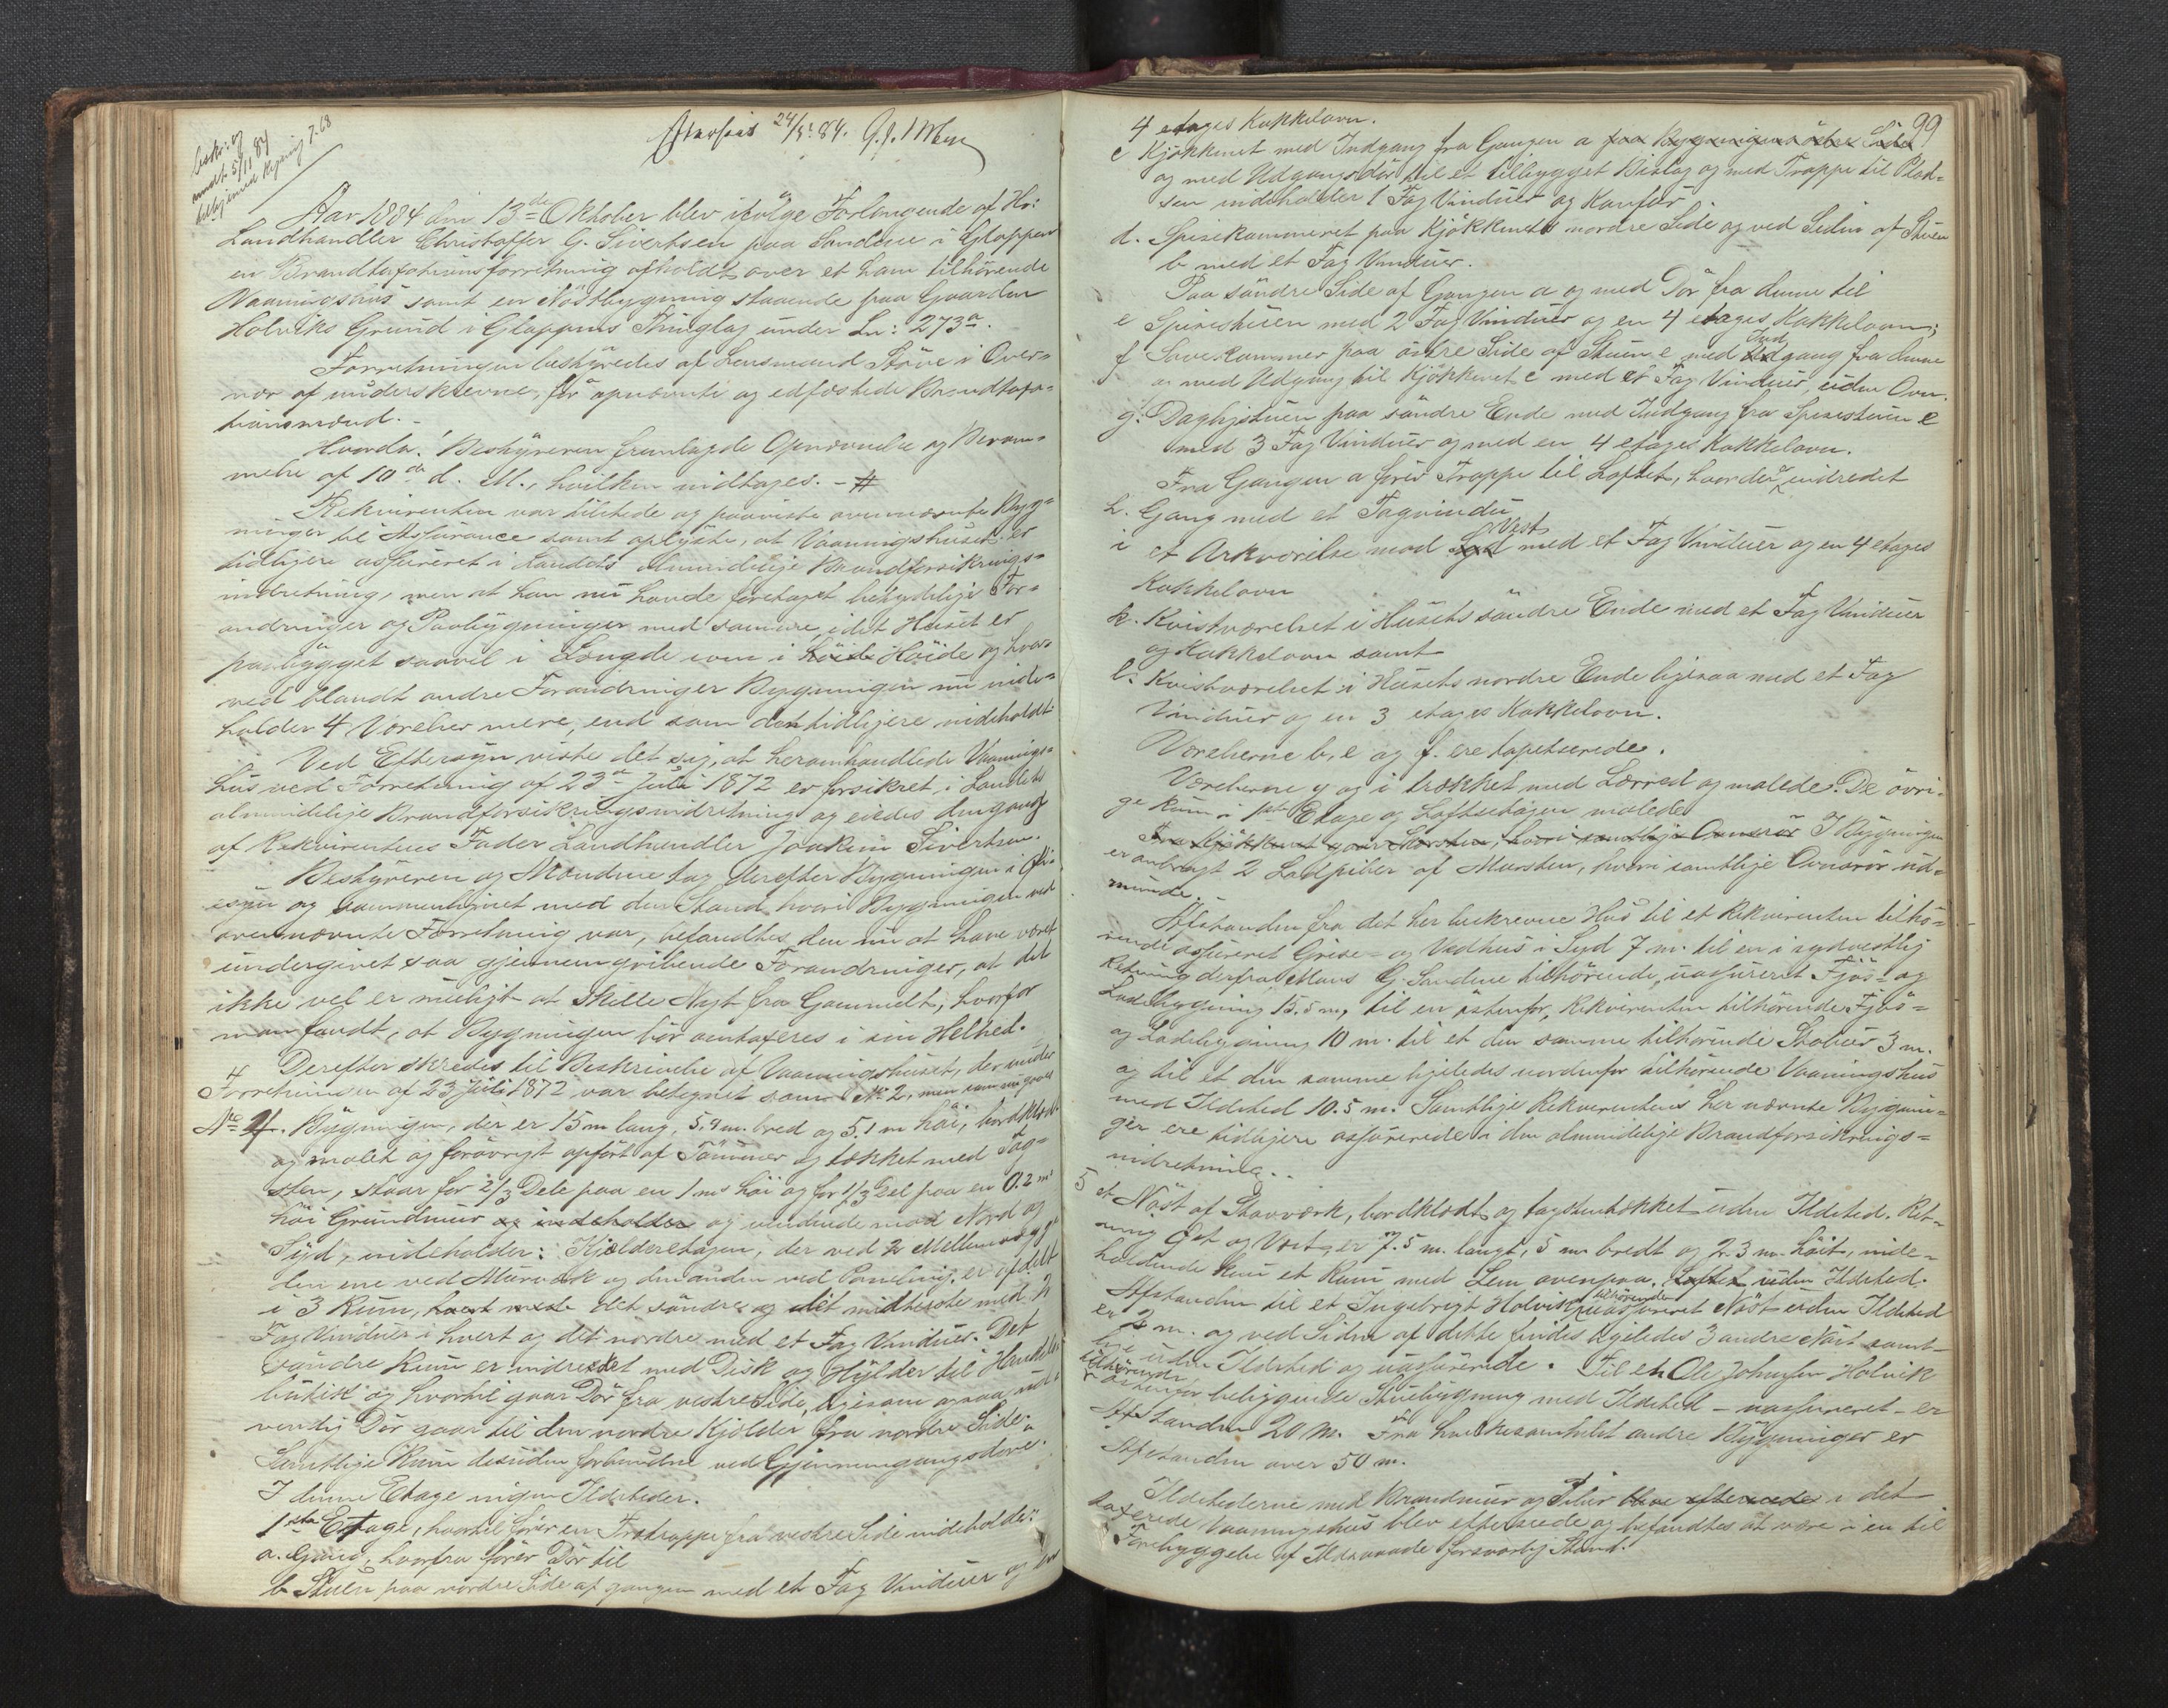 beskr: og
medt 5/11 84
7.68
24/10 84.
Aar 1884 den 13de Oktober blev ifölge Forlangende af Hr:
Landhandler Christoffer G. Sivertsen paa Sandene i Gloppen
en Brandtaxationsforretning afholdt over et ham tilhörende
Vaaningshus samt en Nöstbygning staaende paa Gaarden
Holviks Grund i Gloppens Thinglag under Ln: 273a.
Forretningen bestyredes af Lensmand i Over-
vær af underskrevne, för opnævnte og edfæstede Brandtaxa-
tionsmænd. -
Hvorda! Bestyreren fremlagde Opnævnelse og Beram-
melse af 10de d. M., hvilken indtages. - #
Rekvirenten var tilstede og paaviste ovennævnte Byg-
ninger til Assurance samt oplyste, at Vaaningshuset er
tidligere assureret i Landets Almindelige Brandforsikrings-
indretning, men at han nu havde foretaget betydelige For-
andringer og Paabygninger med samme, idet Huset er
paabygget saavel i Længde som i höide Höide og hvor-
ved blandt andre Forandringer Bygningen nu inde-
holder 4 Værelser mere, end som den tidligere indeholdt
Ved Eftersyn viste det sig, at heromhandlede Vaanings-
hus ved Forretning af 23de Juli 1872 er forsikret i Landets
almindelige Brandforsikringsindretning og eiedes dengang
af Rekvirentens Fader Landhandler Joakim Sivertsen.
Bestyreren og Mændene tog derefter Bygningen i Öie-
syn og sammenlignet med den Stand hvori Bygningen ved
ovennævnte Forretning var, befandtes den nu at have været
undergivet saa gjennemgribende Forandringer, at det
ikke vel er muligt at skille Nyt fra Gammelt, hvorfor
man fandt, at Bygningen bör omtaxeres i sin Helhed.
Derefter skredes til Beskrivelse af Vaaningshuset, der under
Forretningen af 23 Juli 1872 var betegnet som No 2, men som nu
4
No 4. Bygningen, der er 15 m lang, 5,9 m. bred og 5.1 m höi, bordklædt
og malet og forövrigt opfört af Tömmer og tækket med Tag-
sten, staar for 2/3 Dele paa en 1 m höi og for 1/3 Del paa en 0.2 m
höi Grundmur og indeholder og vendende mod Nord og
Syd, indeholder: Kjælderetagen, der ved 2 Mellemvægge
den ene ved Murværk og den anden ved Paneling, er afdelt
i 3 Rum, hvert med det söndre og det midterste med 2
Fag Vinduer i hvert og det nordre med et Fag Vinduer. Det
söndre Rum er indredet med Disk og Hylder til Handels-
butik og hvortil gaar Dör fra vestre Side, ligesom ogsaa ud-
vendig Dör gaar til den nordre Kjælder fra nordre Side.
Samtlige Rum desuden forbundne ved Gjennemgangsdöre.
I denne Etage ingen Ildsteder.
1ste Etage, hvortil förer en Trætrappe fra vestre Side indeholder:
a. Gang, hvorfra förer Dör til
b Stuen paa nordre Side af gangen med et Fag Vinduer og en
99
4 etages Kakkelovn.
c Kjökkenet med Indgang fra Gangen a paa Bygningens östre Side
og med Udgangsdör til et tilbygget Bislag og med Trappe til Plad-
sen indeholder 1 Fag Vinduer og Komfur
d. Spisekammeret paa Kjökkenets nordre Side og ved Siden af Stuen
b med et Fag Vinduer.
Paa söndre Side af Gangen a og med Dör fra denne til
e Spisestuen med 2 Fag Vinduer og en 4 etages Kakkelovn;
f Sovekammer paa östre Side af Stuen e med Ind Udgang fra denne
og med Udgang til Kjökkenet c med et Fag Vinduer, uden Ovn.
g: Dagligstuen paa söndre Ende med Indgang fra Spisestuen e
med 3 Fag Vinduer og med en 4 etages Kakkelovn.
Fra Gangen a förer Trappe til Loftet, hvor der er indredet
h. Gang med et Tagvindu
i et Arkværelse mod Syd Vest med et Fag Vinduer og en 4 etages
Kakkelovn
k. Kvistværelset i Husets söndre Ende med et Fag Vinduer
og Kakkelovn samt
l. Kvistværelset i Husets nordre Ende ligesaa med et Fag
Vinduer og en 3 etages Kakkelovn.
Værelserne b, e og f. ere tapetserede.
Værelserne g og i trækket med Lærred og malede. De övri-
ge Rum i 1ste Etage og Loftsetagen malede
Fra Kjökkenet gaar Skorsten, hvori samtlige Ovnsrör I Bygningen
er anbragt 2 Ladpiber af Mursten, hvori samtlige Ovnsrör ud-
munde.
Afstanden fra det her beskrevne Hus til et Rekvirenten tilhö-
rende assureret Grise- og Vedhus i Syd 7 m. til en i sydvestlig
Retning derfra Mons G. Sandene tilhörende, uassureret Fjös- og
Ladebygning 15.5 m, til en östenfor, Rekvirenten tilhörende Fjös-
og Ladebygning 10 m. til et den samme tilhörende Stabur 3 m.
og til et den samme ligeledes nordenfor tilhörende Vaaningshus
med Ildsted 10.5 m. Samtlige Rekvirentens her nævnte Bygnin-
ger ere tidligere assurerede i den almindelige Brandforsikrings-
indretning.
5 et Nöst af Stavværk, bordklædt og tagstentækket uden Ildsted. Ret-
ning Öst og Vest, er 7.5 m. langt, 5 m bredt og 2.3 m. höit, inde-
holdende kun et Rum med Lem ovenpaa. Loftet uden Ildsted.
Afstanden til et Ingebrigt Holvik tilhörende uassureret Nöst uden Ildsted
er 2 m. og ved Siden af dette findes ligeledes 3 andre Nöst samt-
lige uden Ildsted og uassurerede. Til en Ole Johansen Holvik
tilhörende
östenfor beliggende Stuebygning med Ildsted - uassureret - er
Afstanden 20 m. Fra hvilkesomhelst andre Bygninger er
Afstanden over 50 m.
Ildstederne med Brandmur og Piber blev efterseede i det
taxerede Vaaningshus blev efterseede og befandtes at være i en til
Forebyggelse af Ildsvaade forsvarlig Stand.